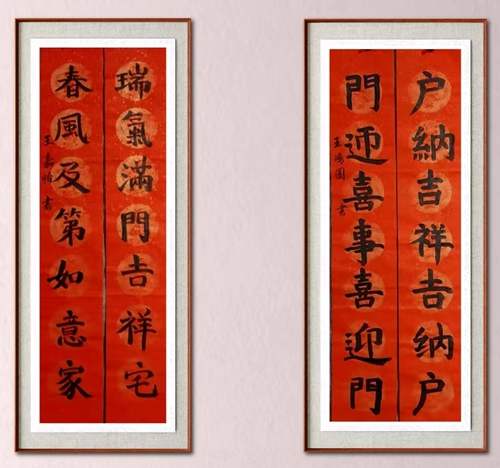 瑞氣滿門吉祥宅
春風及第如意家
王 書
户納吉祥吉纳户
門迎喜事喜迎門
王 書